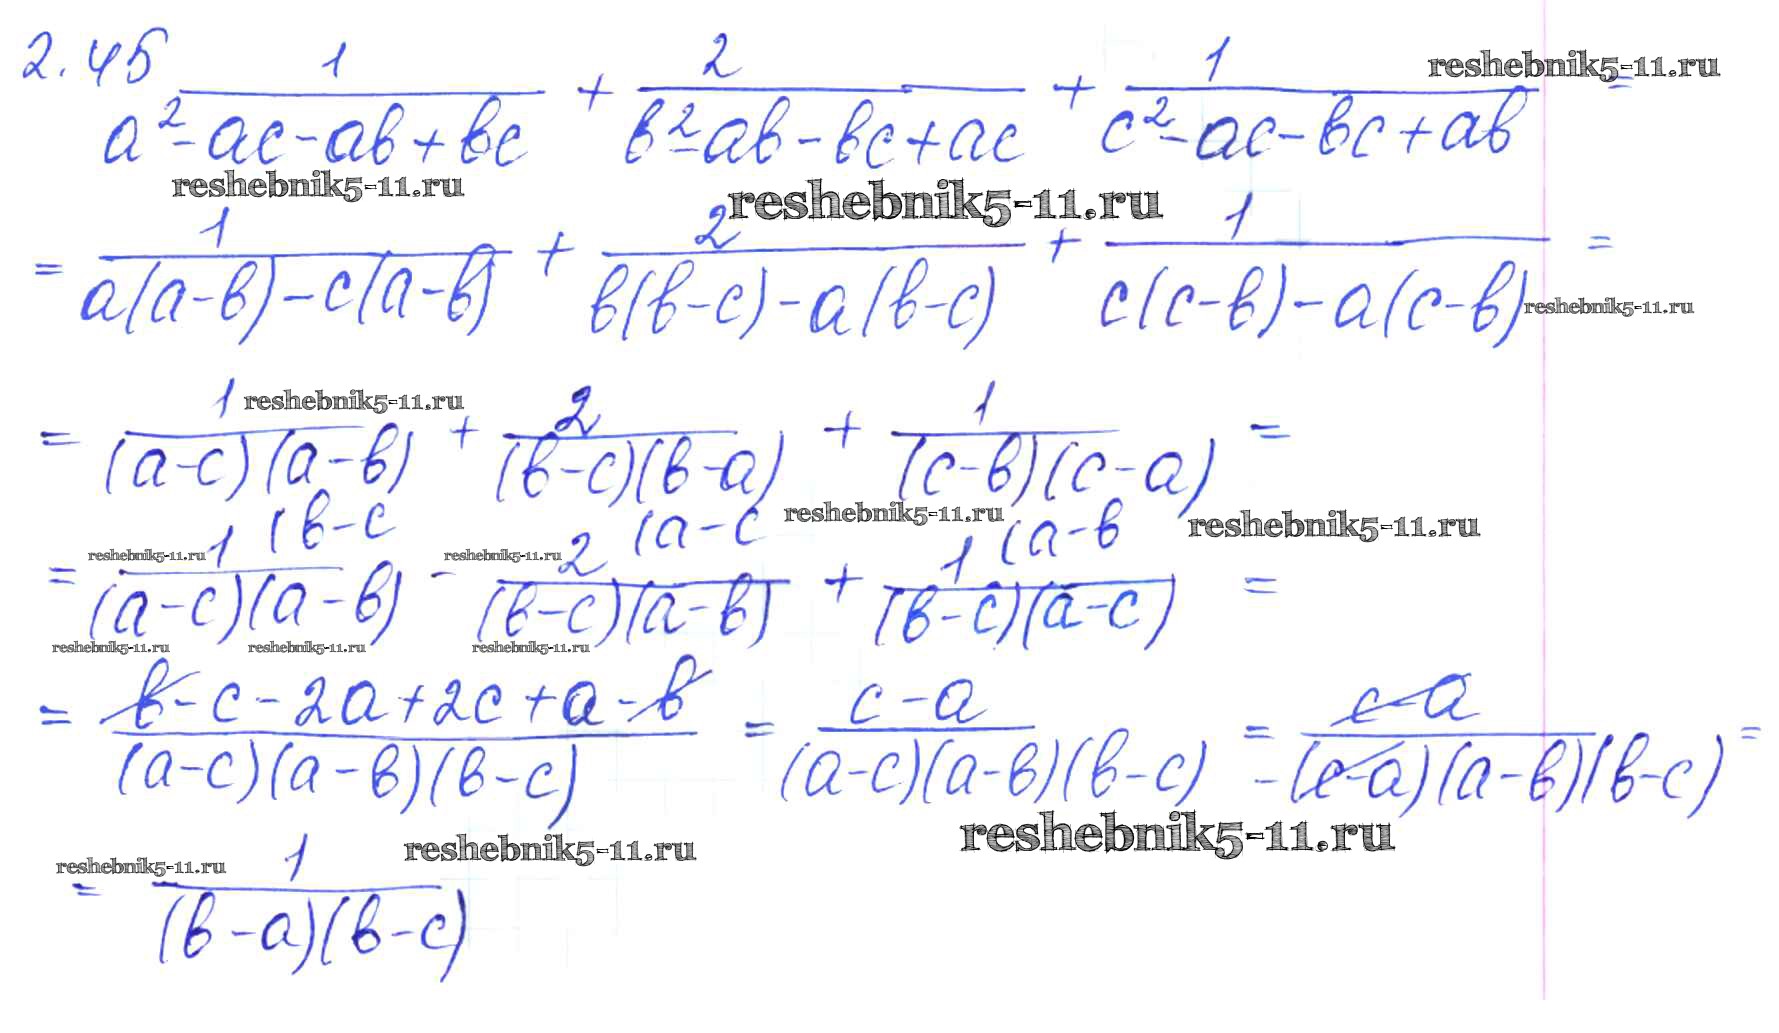 2.45 1/(a²-ac-ab+bc) + 2/(b²-ab-bc+ac) + 1/(c²-ac-bc+ab) =
reshebnik5-11.ru
reshebnik5-11.ru reshebnik5-11.ru
= 1/(a(a-b)-c(a-b)) + 2/(b(b-c)-a(b-c)) + 1/(c(c-b)-a(c-b)) =
reshebnik5-11.ru
reshebnik5-11.ru
= 1/((a-c)(a-b)) + 2/((b-c)(b-a)) + 1/((c-b)(c-a)) =
reshebnik5-11.ru reshebnik5-11.ru
reshebnik5-11.ru reshebnik5-11.ru
= 1(b-c/((a-c)(a-b)) - 2(a-c/((b-c)(a-b)) + 1(a-b/((b-c)(a-c)) =
reshebnik5-11.ru reshebnik5-11.ru reshebnik5-11.ru
= (b-c-2a+2c+a-b)/((a-c)(a-b)(b-c)) = (c-a)/((a-c)(a-b)(b-c)) = (c-a)/(-(c-a)(a-b)(b-c)) =
reshebnik5-11.ru
reshebnik5-11.ru reshebnik5-11.ru
= 1/((b-a)(b-c))